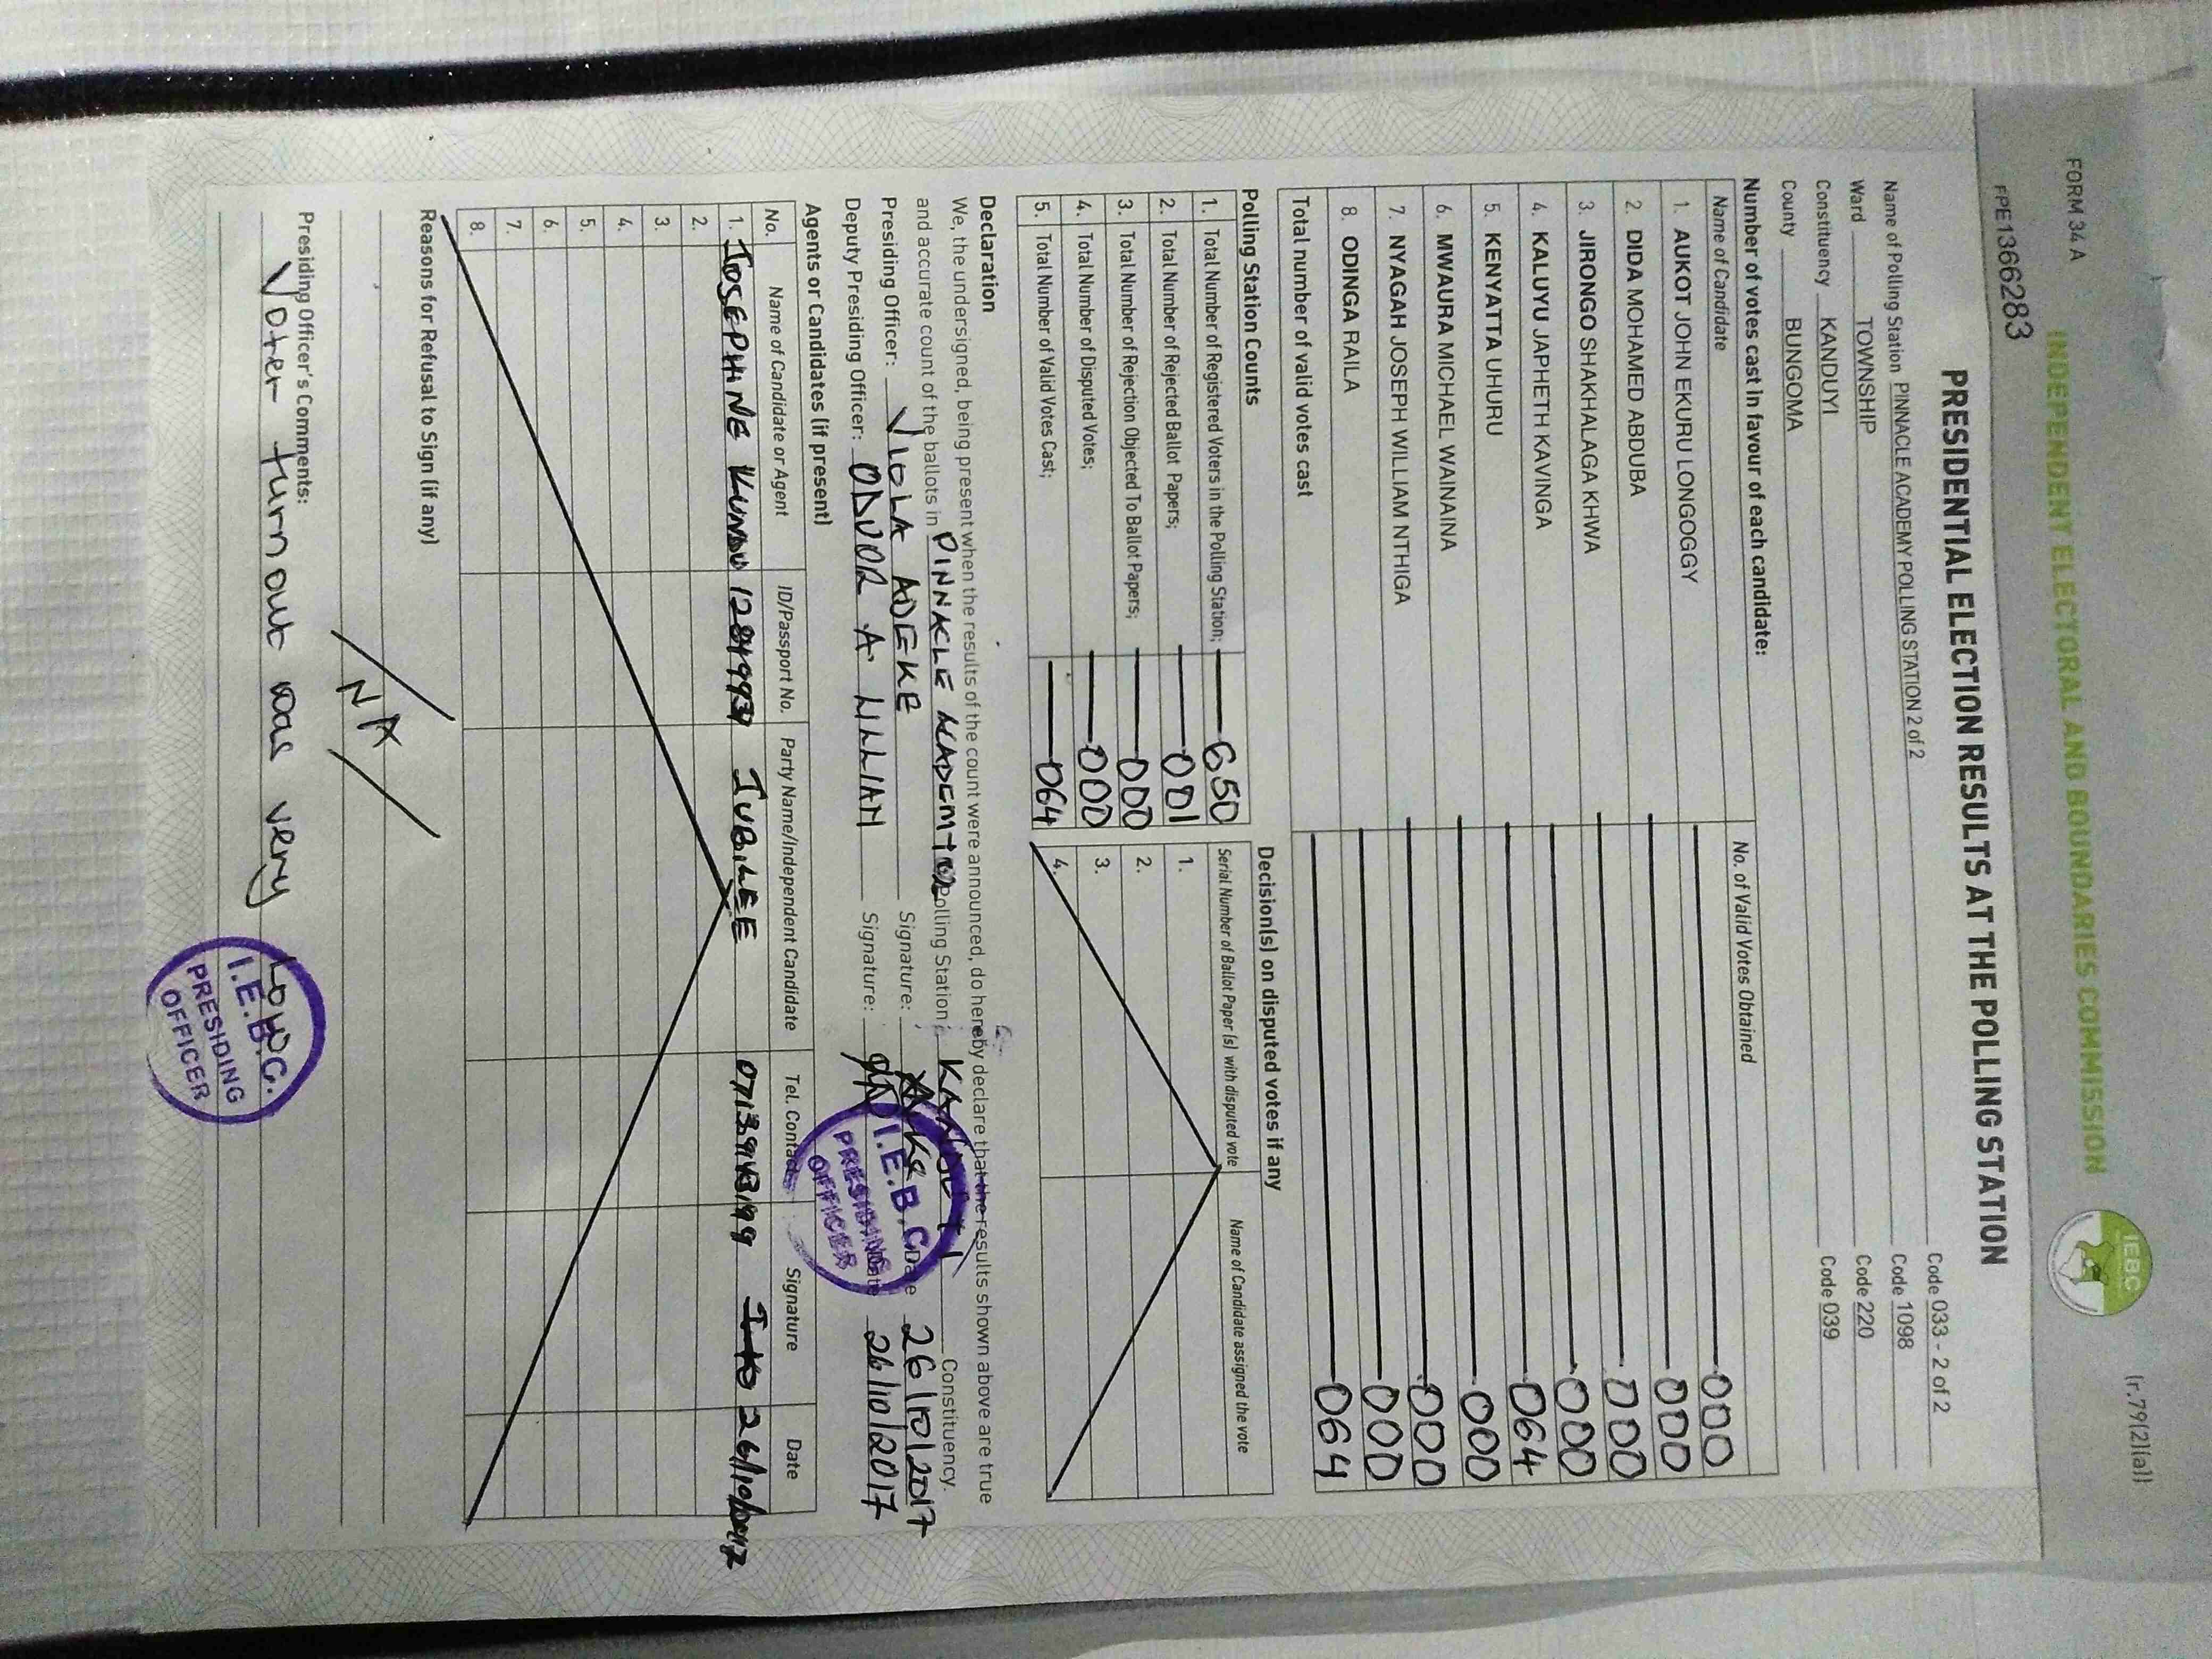 FORM 34 A
(r.79(2)(a))
INDEPENDENT ELECTORAL AND BOUNDARIES COMMISSION
IEBC
FPE1366283
PRESIDENTIAL ELECTION RESULTS AT THE POLLING STATION
Code 033 - 2 of 2
Name of Polling Station PINNACLE ACADEMY POLLING STATION 2 of 2 Code 1098
Ward TOWNSHIP Code 220
Constituency KANDUYI Code 039
County BUNGOMA
Number of votes cast in favour of each candidate:
Name of Candidate No. of Valid Votes Obtained
1. AUKOT JOHN EKURU LONGOGGY 000
2. DIDA MOHAMED ABDUBA 000
3. JIRONGO SHAKHALAGA KHWA 000
4. KALUYU JAPHETH KAVINGA 000
5. KENYATTA UHURU 064
6. MWAURA MICHAEL WAINAINA 000
7. NYAGAH JOSEPH WILLIAM NTHIGA 000
8. ODINGA RAILA 000
Total number of valid votes cast 064
Polling Station Counts
1. Total Number of Registered Voters in the Polling Station; 650
2. Total Number of Rejected Ballot Papers; 001
3. Total Number of Rejection Objected To Ballot Papers; 000
4. Total Number of Disputed Votes; 000
5. Total Number of Valid Votes Cast; 064
Decision(s) on disputed votes if any
Serial Number of Ballot Paper (s) with disputed vote Name of Candidate assigned the vote
1.
2.
3.
4.
Declaration
We, the undersigned, being present when the results of the count were announced, do hereby declare that the results shown above are true
and accurate count of the ballots in PINNACLE ACADEMY Polling Station; KANDUYI Constituency.
Presiding Officer: VIOLA ADEKE Signature: Date 26/10/2017
Deputy Presiding Officer: ODUOR A LILLIAN Signature: Date 26/10/2017
I.E.B.C.
PRESIDING
OFFICER
Agents or Candidates (if present)
No. Name of Candidate or Agent ID/Passport No. Party Name/Independent Candidate Tel. Contact Signature Date
1. JOSEPHINE JUBILEE
2.
3.
4.
5.
6.
7.
8.
Reasons for Refusal to Sign (if any)
NA
Presiding Officer's Comments:
Voter turn out was very Low
I.E.B.C.
PRESIDING
OFFICER